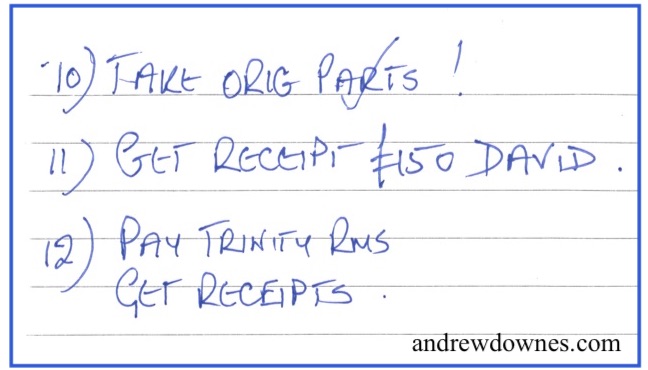 10) TAKE ORIG PARTS !
11) GET RECEIPT £150 DAVID.
12) PAY TRINITY RMS
GET RECEIPTS.
andrewdownes.com